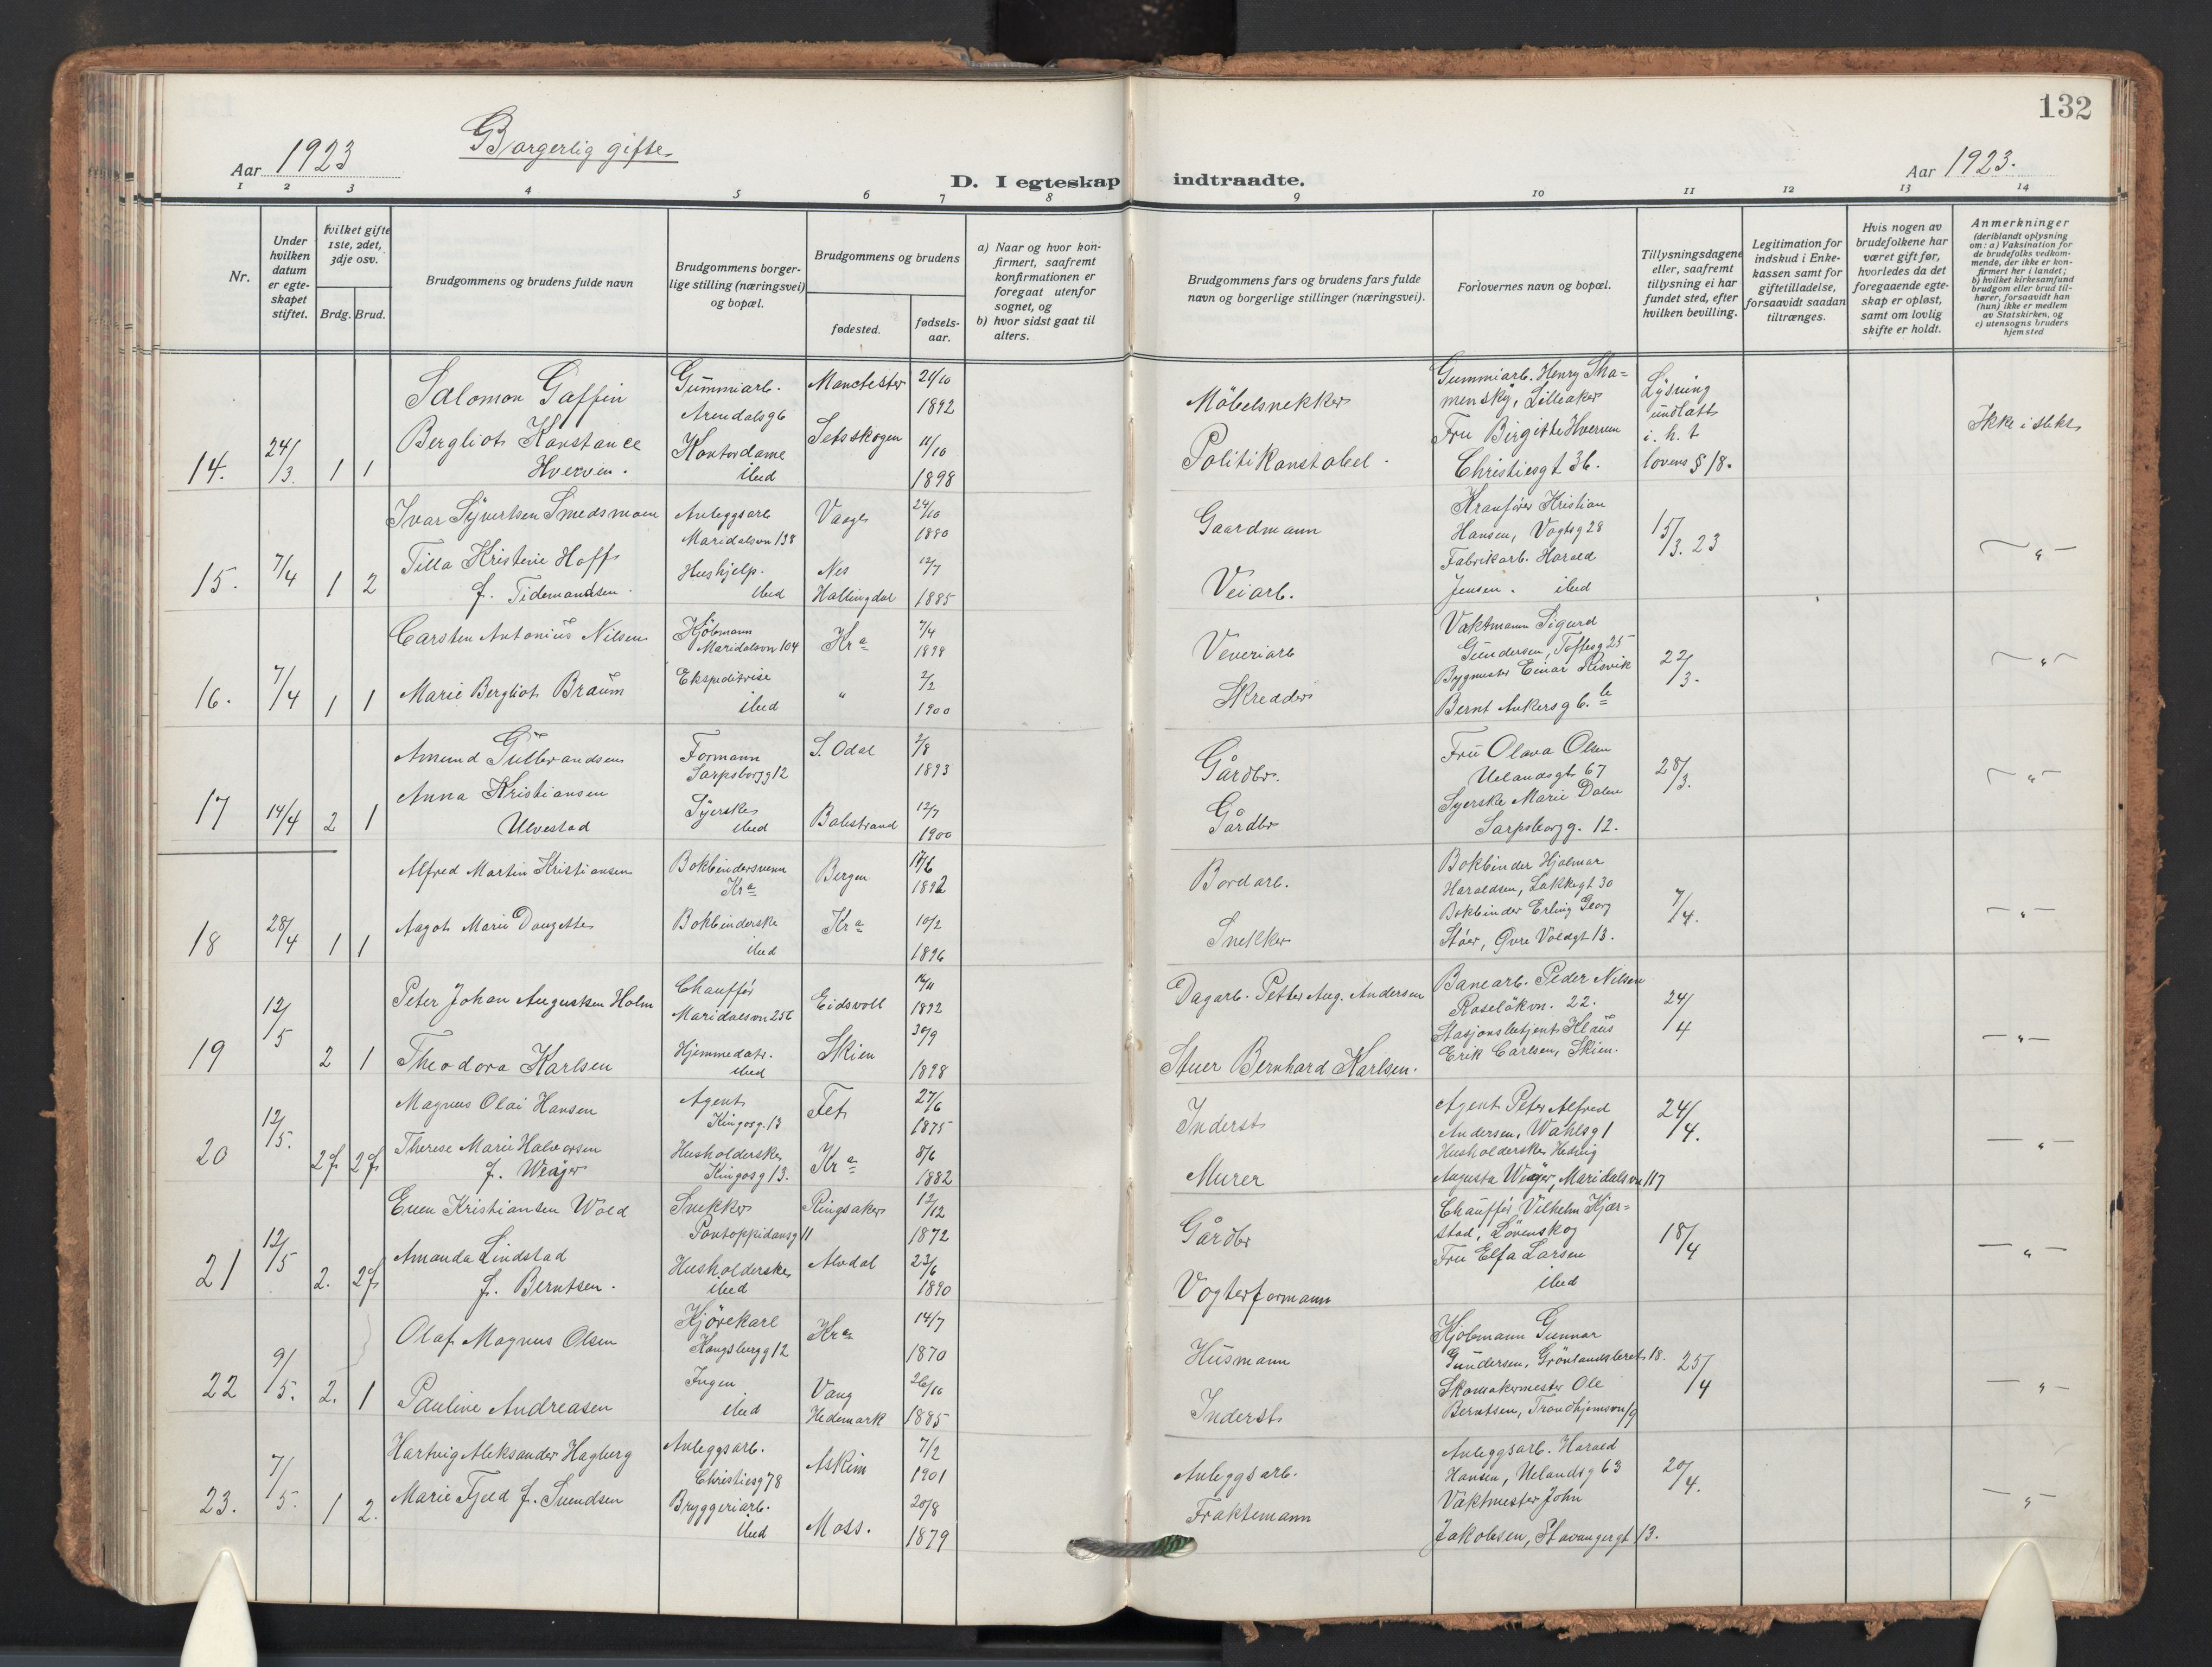 132
Aar 1923
Borgerlig gifte.
D. I egteskap indtraadte.
Aar 1923.
1 2 3 4 5 6 7 8 9 10 11 12 13 14
Nr.
Under hvilken datum er egteskapet stiftet.
hvilket gifte 1ste, 2det, 3dje osv.
Brdg. Brud.
Brudgommens og brudens fulde navn
Brudgommens borgerlige stilling (næringsvei) og bopæl.
Brudgommens og brudens
fødested.
fødselsaar.
a) Naar og hvor konfirmert, saafremt konfirmationen er foregaat utenfor sognet, og
b) hvor sidst gaat til alters.
Brudgommens fars og brudens fars fulde navn og borgerlige stillinger (næringsvei).
Forlovernes navn og bopæl.
Tillysningsdagene eller, saafremt tillysning ei har fundet sted, efter hvilken bevilling.
Legitimation for indskud i Enkekassen samt for giftetilladelse, forsaavidt saadan tiltrænges.
Hvis nogen av brudefolkene har været gift før, hvorledes da det foregaaende egteskap er opløst, samt om lovlig skifte er holdt.
Anmerkninger
(deriblandt oplysning om: a) Vaksination for de brudefolks vedkommende, der ikke er konfirmert her i landet; b) hvilket kirkesamfund brudgom eller brud tilhører, forsaavidt han (hun) ikke er medlem av Statskirken, og c) utensogns bruders hjemsted
14. 24/3. 1 1
Salomon Gaffin
Gummiarb. Arendalsg 6
Manchester 21/10 1892
Møbelsnekker
Bergliot Konstance Hverven.
Kontordame ibid
Setsskogen 11/10 1898
Politikonstabel.
Gummiarb. Henry Shamensky, Lilleaker
Fru Birgitte Hverven
Christiesgt 36.
Lysning undlatt i. h. t lovens § 18.
Ikke i slekt
15. 7/4 1 2
Ivar Syvertsen Smedsmoen
Anleggsarb Maridalsvn 138
Vaage 24/10 1880
Gaardmann
Tilla Kristine Hoff f. Tidemandsen.
Hushjelp. ibid
Nes Hallingdal 12/7 1885
Veiarb.
Kranfører Kristian Hansen, Vogtsg 28
Fabrikarb. Harald Jensen. ibid
15/3. 23
— " —
16. 7/4 1 1
Carsten Antonius Nilsen
Kjøbmann Maridalsvn 104
Kra 7/4 1898
Veveriarb
Marie Bergliot Braum
Ekspeditrise ibid
" 2/2 1900
Skredder
Vaktmann Sigurd Gundersen, Toftesg 25
Bygmester Einar Risvik
Bernt Ankersg 6. b
22/3.
— " —
17 14/4 2 1
Amund Gulbrandsen
Formann Sarpsborgg 12
S. Odal 2/8 1893
Gårdbr.
Anna Kristiansen Ulvestad
Syerske ibid
Balestrand 12/7 1900
Gårdbr
Fru Olava Olsen
Uelandsgt 67
Syerske Marie Dalen
Sarpsborgg. 12.
28/3.
— " —
18 28/4 1 1
Alfred Martin Kristiansen
Bokbindersvenn Kra
Bergen 17/6 1892
Bordarb.
Aagot Marie Dougette
Bokbinderske ibid
Kra 10/2 1896
Snekker
Bokbinder Hjalmar Haraldsen, Lakkegt 30
Bokbinder Erling Georg Støer, Øvre Voldgt 13.
7/4.
— " —
19 12/5 2 1
Peter Johan Augustsen Holm
Chauffør Maridalsvn 256
Eidsvoll 16/11 1892
Dagarb. Petter Aug. Andersen
Theodora Karlsen
Hjemmedatr. ibid
Skien 30/9 1898
Stuer Bernhard Karlsen.
Banearb. Peder Nilsen
Roseløkvn. 22.
Stasjonsbetjent Klaus Erik Carlsen, Skien.
24/4
— " —
20 12/5. 2f 2f
Magnus Olai Hansen
Agent Kingosg. 13
Fet 27/6 1875
Inderst
Therese Marie Halvorsen f. Wråger
Husholderske Kingosg 13.
Kra 8/6 1882
Murer
Agent Peter Alfred Andersen, Wahlsg 1
Husholderske Hedvig Augusta Wråger, Maridalsvn 117
24/4.
— " —
21 12/5 2. 2f
Even Kristiansen Wold
Snekker Pontoppidansg 11
Ringsaker 12/12 1872
Gårdbr
Amanda Lindstad f. Berntsen.
Husholderske ibid
Alvdal 23/6 1890
Vogterformann
Chauffør Vilhelm Kjærstad, Lørenskog
Fru Elfa Larsen ibid
18/4
— " —
22 9/5. 2. 1
Olaf Magnus Olsen
Kjørekarl Kongsbergg 12
Kra 14/7 1870
Husmann
Pauline Andreasen
Ingen ibid
Vang Hedemark 26/10 1885
Inderst
Kjøbmann Gunnar Gundersen, Grønlandsleret 18.
Skomakermester Ole Berntsen, Trondhjemsvn 19
25/4
— " —
23. 7/5. 1 2.
Hartvig Aleksander Hagberg
Anleggsarb. Christiesg 78
Askim 7/2 1901
Anleggsarb.
Marie Fjeld f. Svendsen
Bryggeriarb. ibid
Moss. 20/8 1879
Fraktemann
Anleggsarb. Harald Hansen, Uelandsg 63
Vaktmester John Jakobsen, Stavangergt 13.
20/4.
— " —